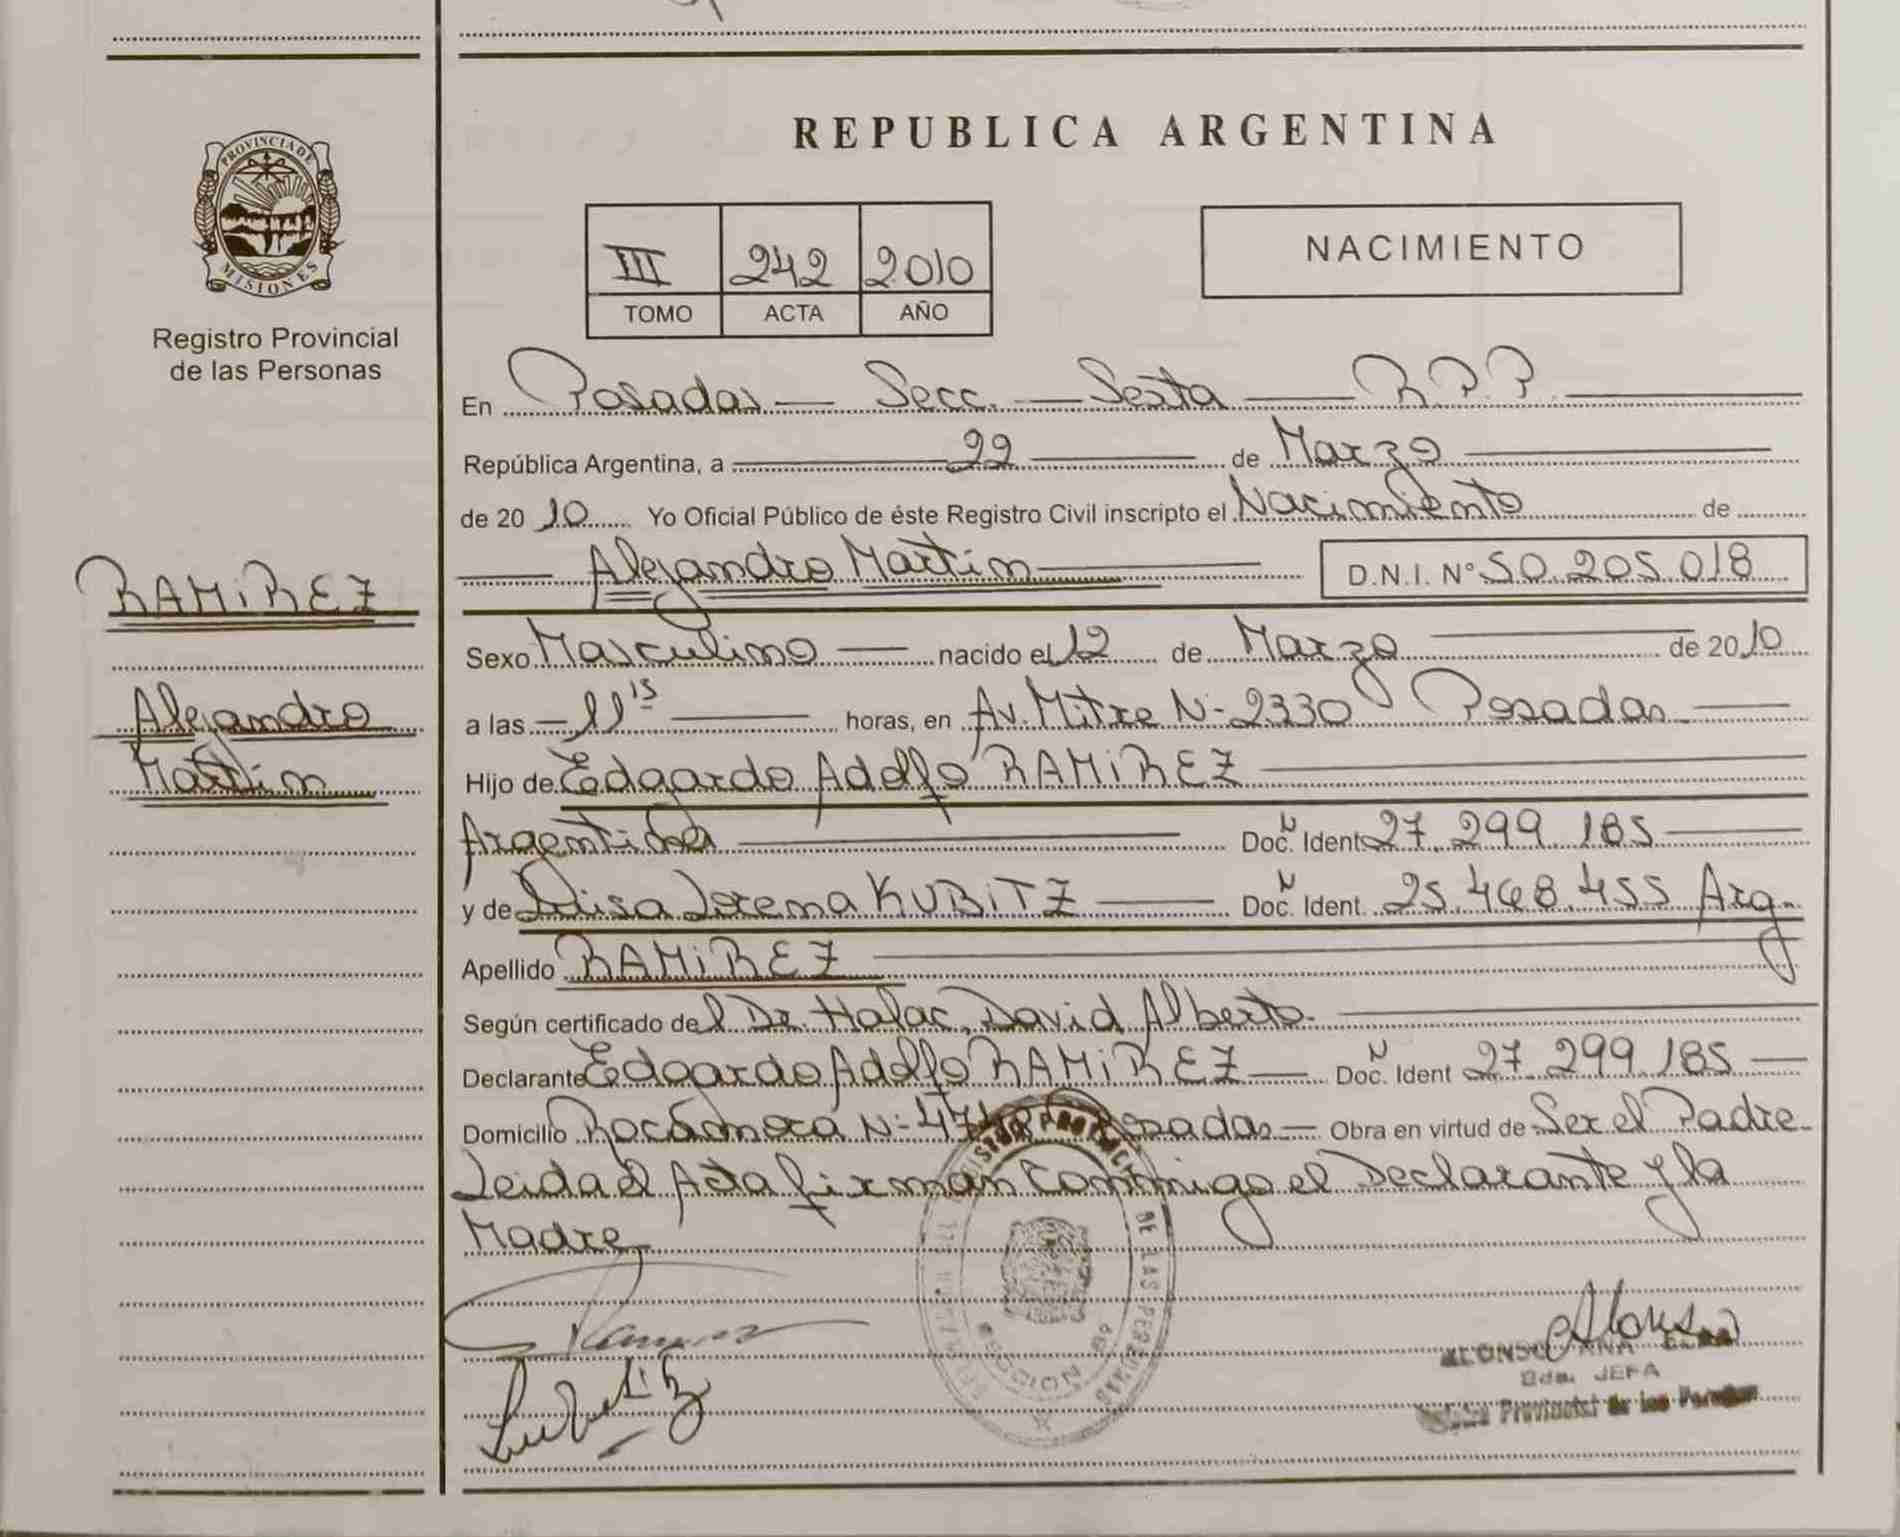 PROVINCIA DE
MISIONES
Registro Provincial
de las Personas
RAMIREZ
Alejandro
Martin
REPUBLICA ARGENTINA
III 242 2010
TOMO ACTA AÑO
NACIMIENTO
En Posadas — Secc. — Sexta — R.P.P.
República Argentina, a 22 de Marzo
de 20 10 Yo Oficial Público de éste Registro Civil inscripto el Nacimiento de
Alejandro Martin D.N.I. N° 50.205.018
Sexo Masculino — nacido el 12 de Marzo de 20 10
a las — 11 15 — horas, en Av. Mitre N- 2330 Posadas —
Hijo de Edgardo Adolfo RAMIREZ
Argentina Doc. N Ident 27.299.185
y de Luisa Lorena KUBITZ — Doc. N Ident. 25.468.455 Arg.
Apellido RAMIREZ
Según certificado del Dr. Halac, David Alberto.
Declarante Edgardo Adolfo RAMIREZ — Doc. N Ident 27.299.185 —
Domicilio Rocamora N- Posadas — Obra en virtud de Ser el Padre.
Leida el Acta firman conmigo el Declarante y la
Madre
REGISTRO PROVINCIAL DE LAS PERSONAS
Alonso
ALONSO ANA
JEFA
Provincial de las Personas